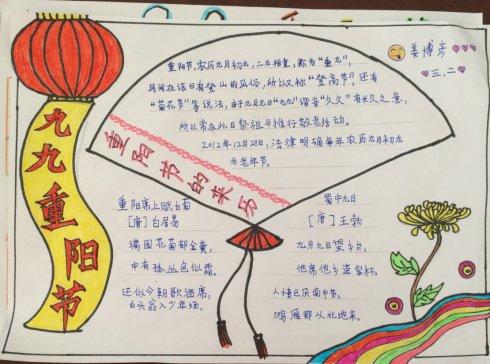 九九重阳节
重阳节,农历九月初九,二九相重,称为"重九",
民间在该日有登山的风俗,所以又称"登高节",还有
"菊花节"等说法,由于九月九日"九九"谐音"久久"有长久之意,
所以常在此日祭祖与推行敬老活动。
2012年12月28日,法律明确每年农历九月初九
为老年节。
重阳节的来历
姜博彦
三.二
重阳席上赋白菊
[唐]白居易
满园花菊郁金黄,
中有孤丛色似霜。
还似今朝歌酒席,
白头翁入少年场。
蜀中九日
[唐]王勃
九月九日望乡台,
他席他乡送客杯。
人情已厌南中苦,
鸿雁那从北地来。